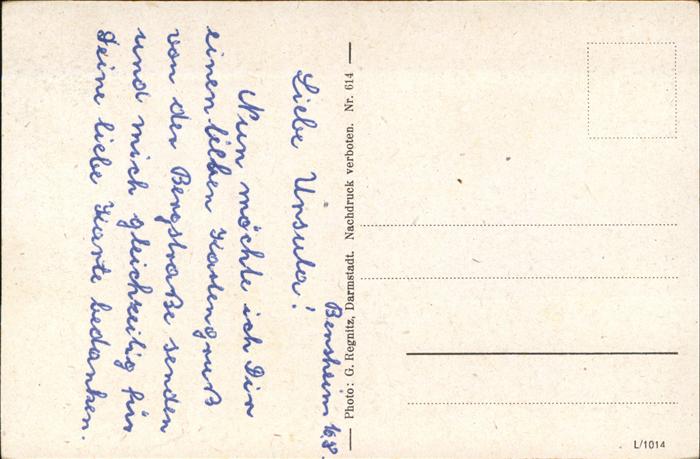 Bensheim 16.8.
Liebe Ursula!
Nun möchte ich Dir
einen lieben Kartengruß
von der Bergstraße senden
und mich gleichzeitig für
Deine liebe Karte bedanken.
Photo: G. Regnitz, Darmstadt. Nachdruck verboten. Nr. 614
L/1014